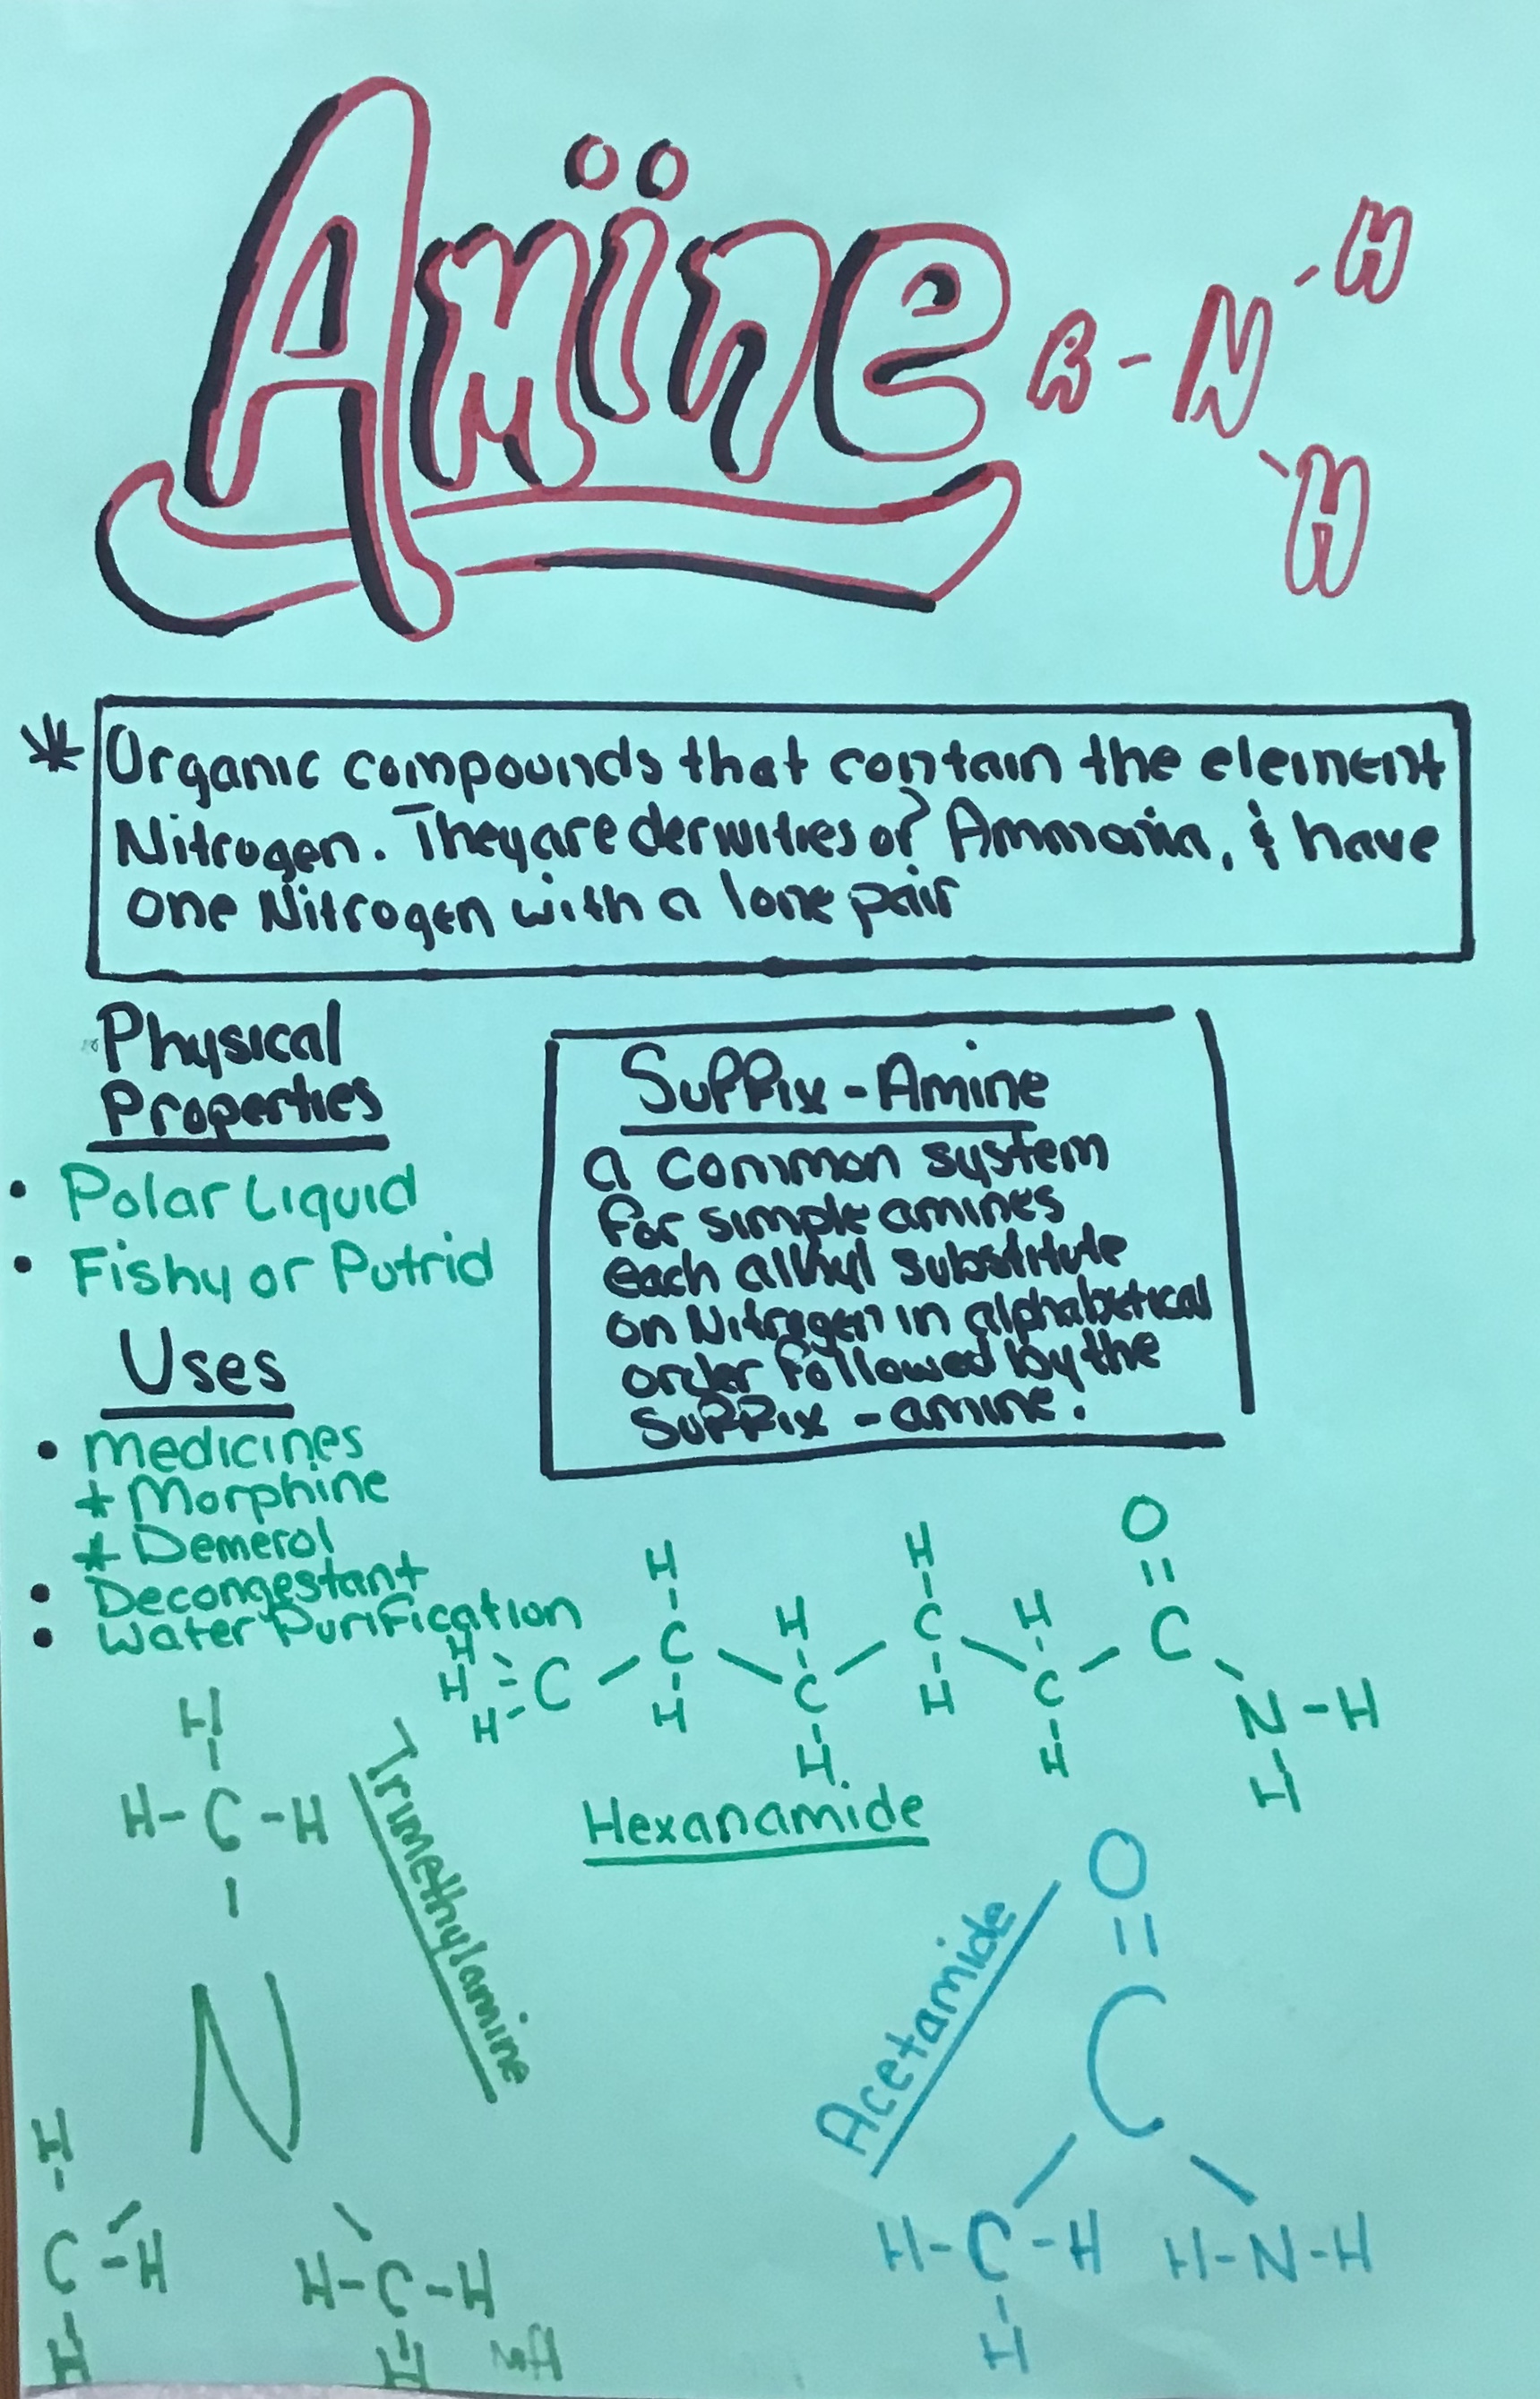 Amïne
R - N - H
- H
* Organic compounds that contain the element
Nitrogen. They are derivities of Ammonia, & have
one Nitrogen with a lone pair
Physical
Properties
• Polar Liquid
• Fishy or Putrid
Uses
• Medicines
* Morphine
* Demerol
• Decongestant
• Water Purification
Suffix - Amine
a common system
for simple amines
each alkyl substitute
on Nitrogen in alphabetical
order followed by the
suffix - amine.
H H O
H H C H C
H C C C N - H
H - C H C H H
H H H
Hexanamide
H
H - C - H
N
H
C - H H - C - H
H H
Trimethylamine
Acetamide
O
C
H - C - H H - N - H
H